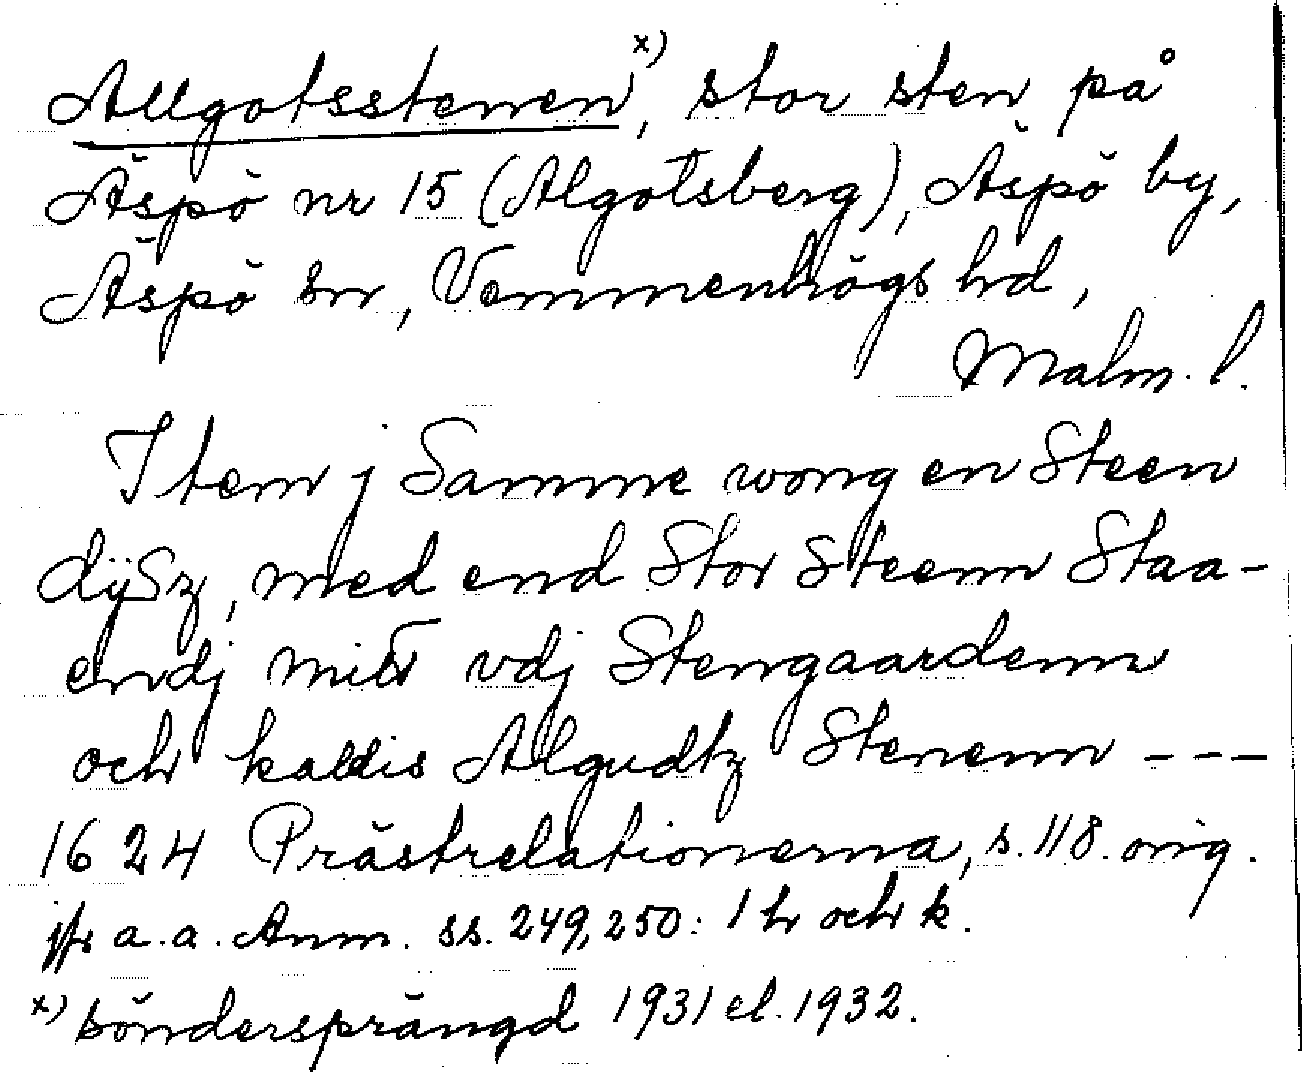 Allgotsstenen x), stor sten på
Äspö nr 15 (Algotsberg), Äspö by,
Äspö sn, Vemmenhögs hd,
Malm. l.
Item j Samme wong en Steen
dÿSz, med end Stor Steenn Staa-
endj mitt vdj Stengaardenn
och kaldis Algudtz Stenenn ---
1624 Prästrelationerna, s. 118. orig.
jfr a.a. Anm. ss. 249, 250: 1 h och k.
x) söndersprängd 1931 el. 1932.